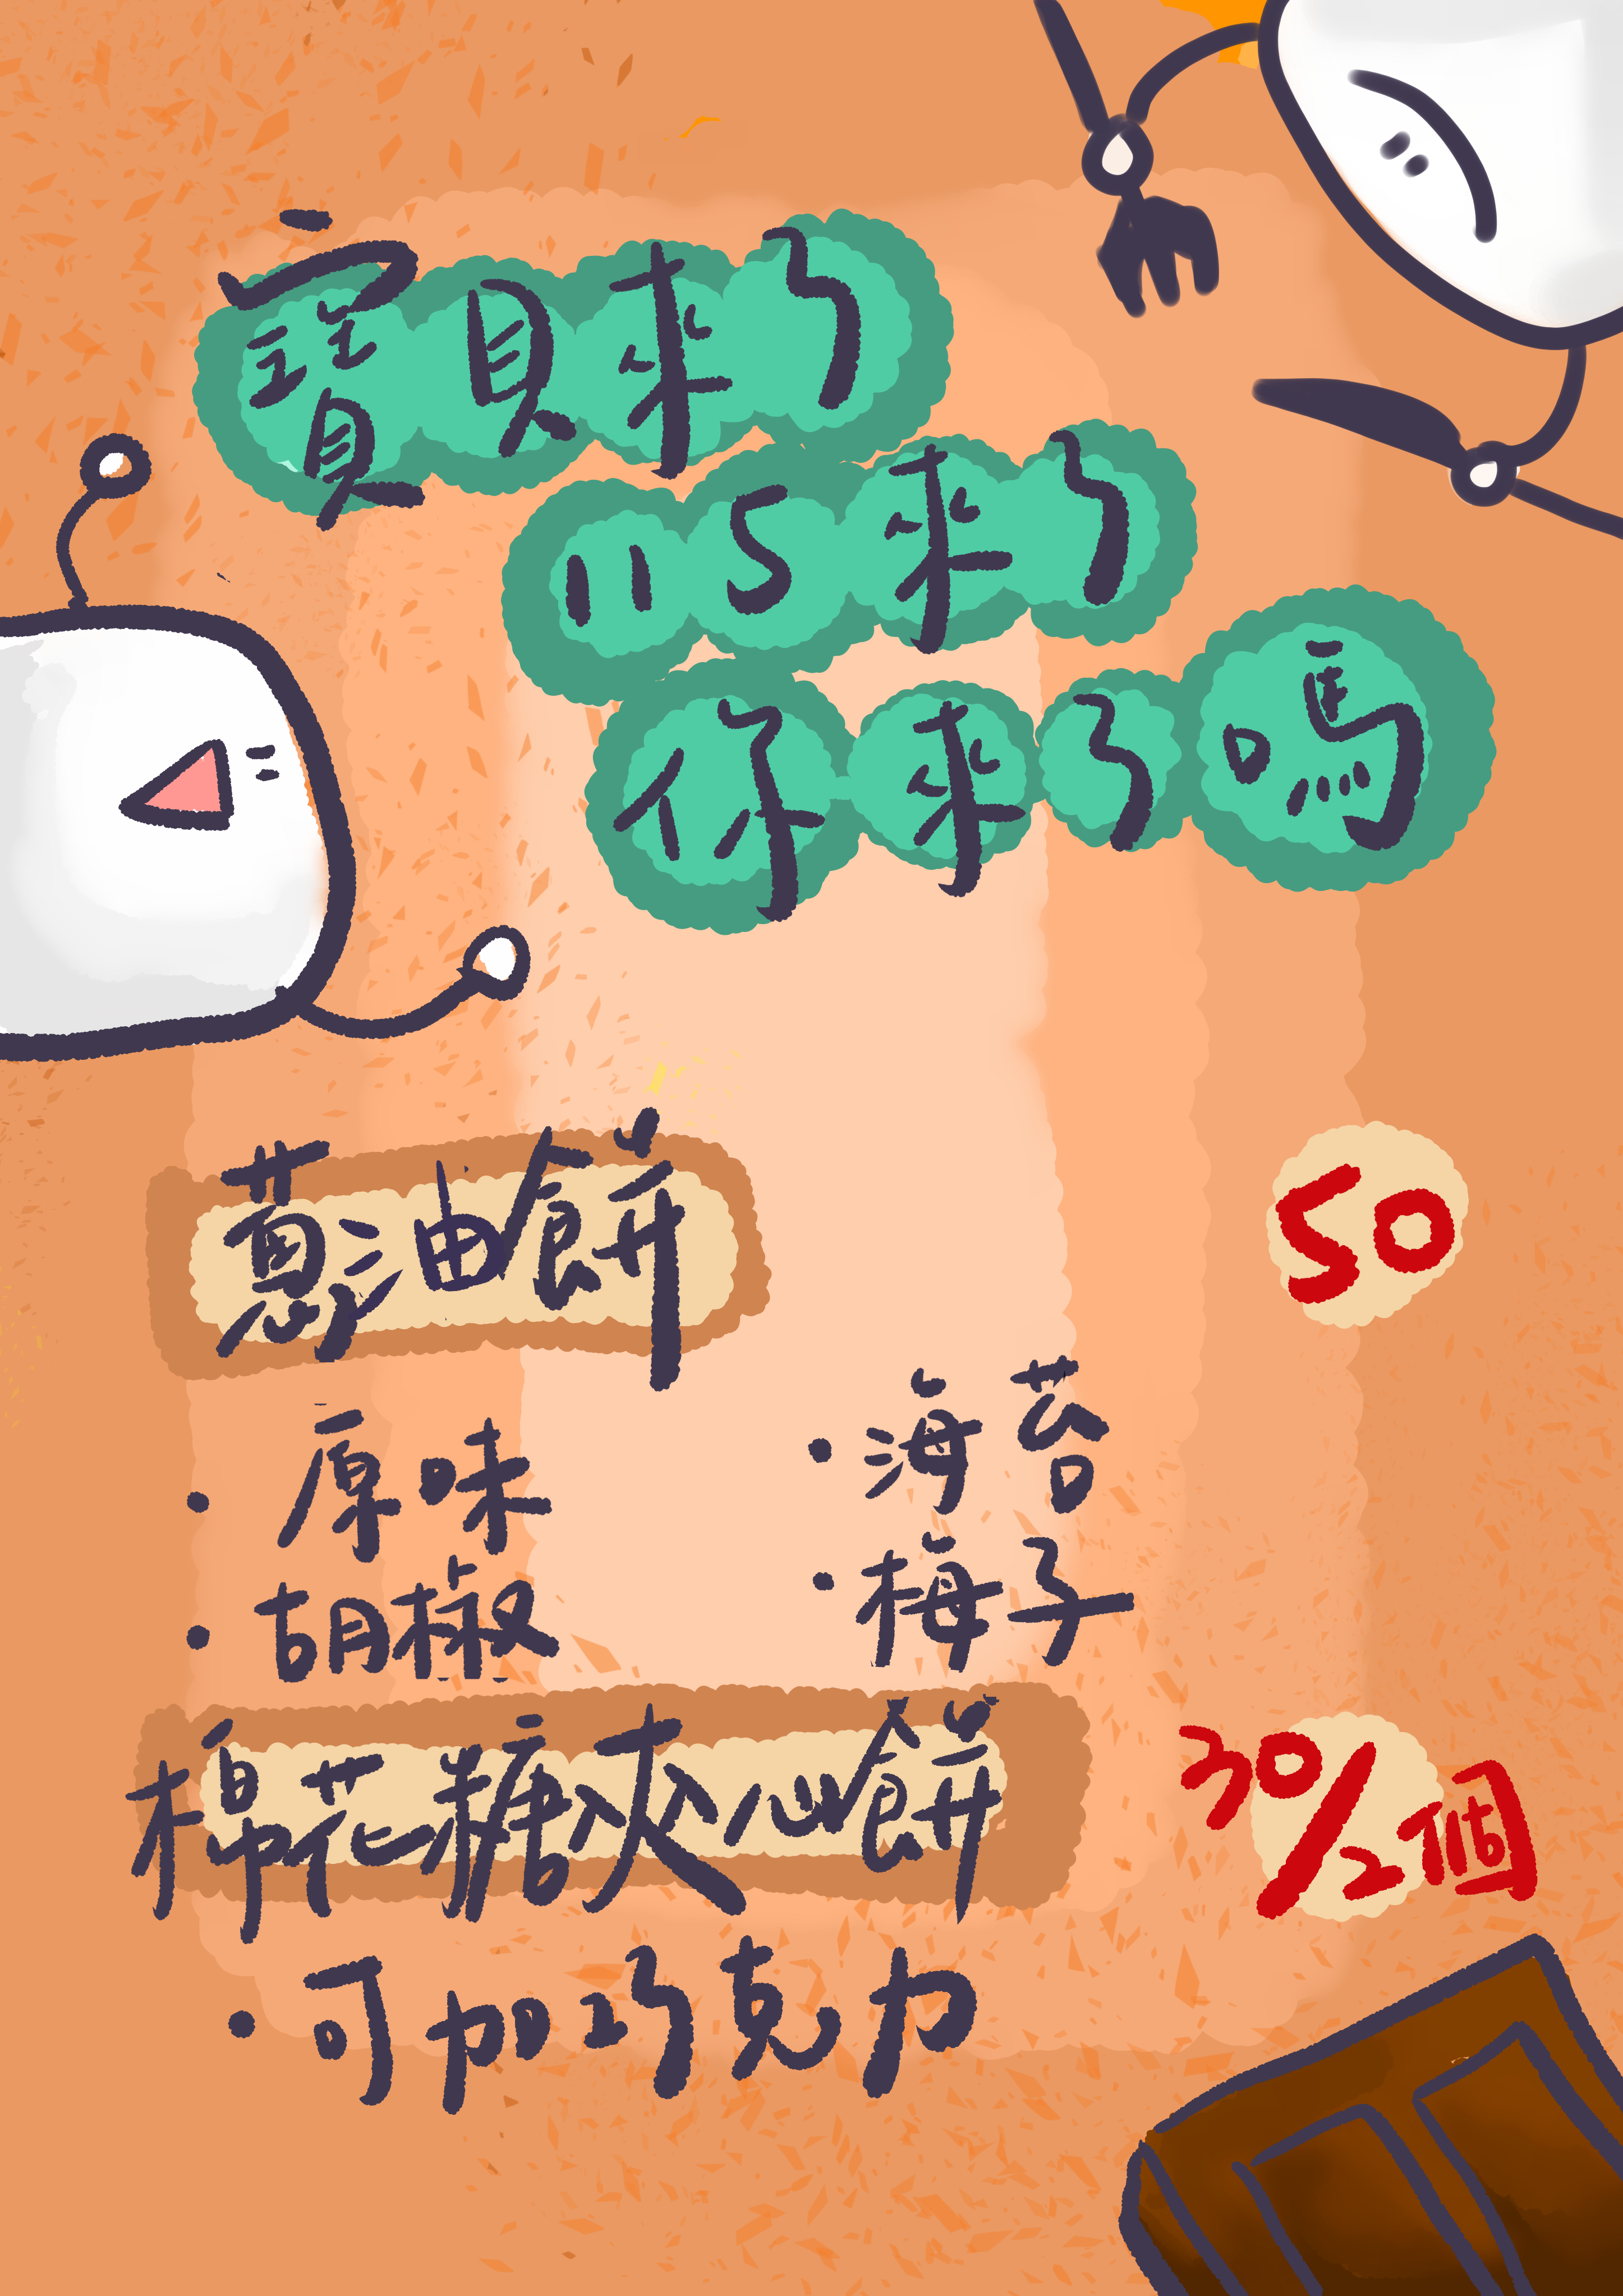 寶貝來了
115來了
你來了嗎
蔥油餅 50
·原味 ·海苔
·胡椒 ·梅子
棉花糖夾心餅 30/2個
·可加巧克力